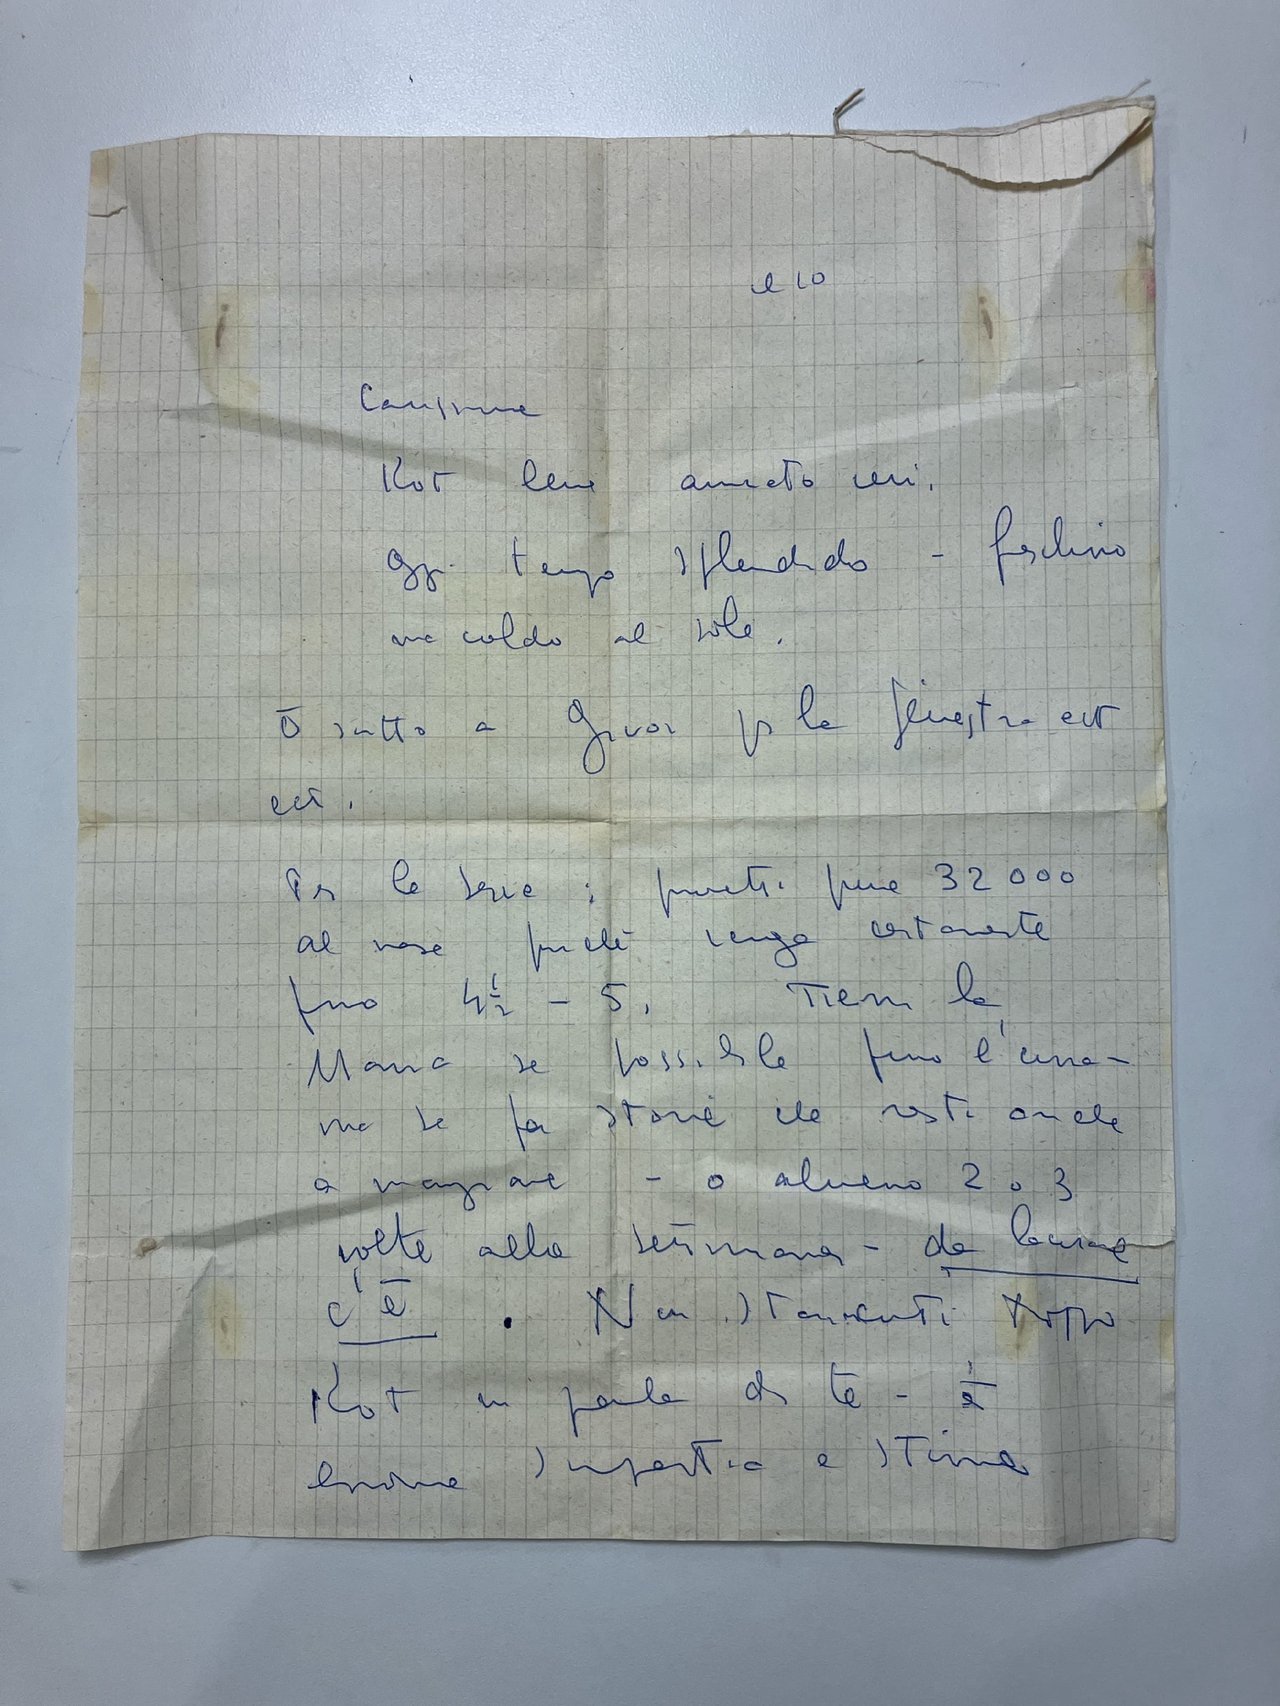 e 10
Carissima
Kot bene arrivato ieri.
Oggi tempo splendido - freschino
ma caldo al sole.
Ò scritto a Givoi p la finestra ect
ect.
Per la serie : prometti pure 32000
al mese purché venga certamente
fino 4½ - 5. Tieni la
Maria se possibile fino l'una -
ma se fa storie che resti anche
a mangiare - o almeno 2 o 3
volte alla settimana - da lavorare
c'è . Non stancarti troppo
Kot mi parla di te - à
enorme simpatia e stima